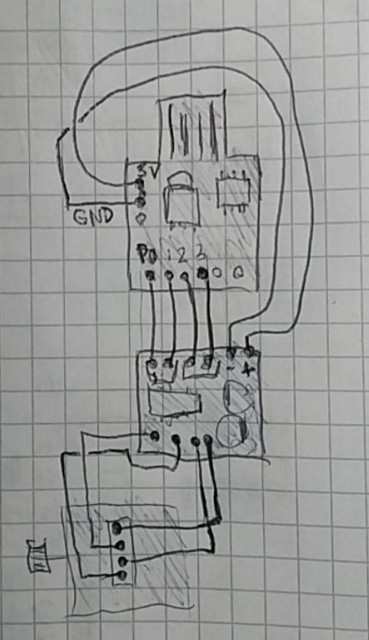 5V
GND
P0 1 2 3
- +